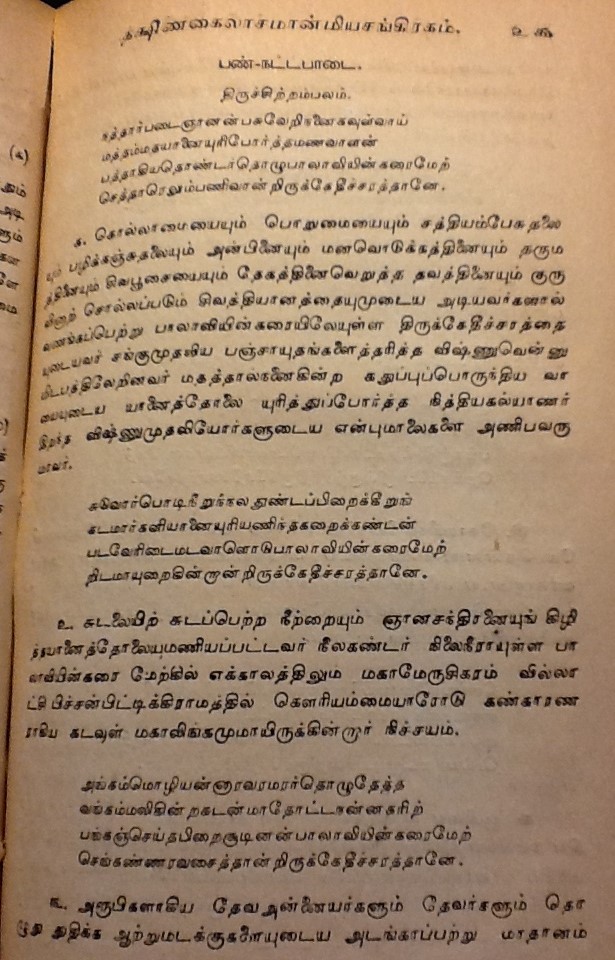 தக்ஷிணகைலாசமான்மியசங்கிரகம். உக
பண்-நட்டபாடை.
திருச்சிற்றம்பலம்.
நத்தார்படைஞானன்பசுவேறிந்நனைகவுள்வாய்
மத்தம்மதயானையுரிபோர்த்தமணவாளன்
பத்தாகியதொண்டர்தொழுபாலாவியின்கரைமேற்
செத்தாரெலும்பணிவான்றிருக்கேதீச்சரத்தானே.
க. கொல்லாமையையும் பொறுமையையும் சத்தியம்பேசுதலை
யும் பழிக்கஞ்சுதலையும் அன்பினையும் மனவொடுக்கத்தினையும் தரும
த்தினையும் சிவபூசையையும் தேகத்தினைவெறுத்த தவத்தினையும் குரு
வினாற் சொல்லப்படும் சிவத்தியானத்தையுமுடைய அடியவர்களால்
வணங்கப்பெற்று பாலாவியின்கரையிலேயுள்ள திருக்கேதீச்சரத்தை
யுடையவர் சங்குமுதலிய பஞ்சாயுதங்களைத்தரித்த விஷ்ணுவென்னு
மிடபத்திலேறினவர் மதத்தால்நனைகின்ற கதுப்புப்பொருந்திய வா
யையுடைய யானைத்தோலை யுரித்துப்போர்த்த நித்தியகல்யாணர்
இறந்த விஷ்ணுமுதலியோர்களுடைய என்புமாலைகளை அணிபவரு
மாவர்.
சுடுவார்பொடிநீறுந்நலதுண்டப்பிறைக்கீறுங்
கடமார்களியானையுரியணிந்தகறைக்கண்டன்
படவேரிடைமடவாளொடுபாலாவியின்கரைமேற்
றிடமாயுறைகின்றான்றிருக்கேதீச்சரத்தானே.
உ. சுடலையிற் சுடப்பெற்ற நீற்றையும் ஞானசந்திரனையுங் கிழி
த்தயானைத்தோலையுமணியப்பட்டவர் நீலகண்டர் நிலைநீராயுள்ள பா
லாவியின்கரை மேற்கில் எக்காலத்திலும் மகாமேருசிகரம் வில்லா
ட்சிபிச்சன்பிட்டிக்கிராமத்தில் கௌரியம்மையாரோடு கண்காரண
ராகிய கடவுள் மகாலிங்கமுமாயிருக்கின்றார் நிச்சயம்.
அங்கம்மொழியன்னாரவரமரர்தொழுதேத்த
வங்கம்மலிகின்றகடன்மாதோட்டநன்னகரிற்
பங்கஞ்செய்தபிறைசூடினன்பாலாவியின்கரைமேற்
செங்கண்ணரவசைத்தான்றிருக்கேதீச்சரத்தானே.
ங. அரூபிகளாகிய தேவஅன்னையர்களும் தேவர்களும் தொ
ழுது துதிக்க ஆற்றுமடக்குகளையுடைய அடங்காப்பற்று மாதானம்